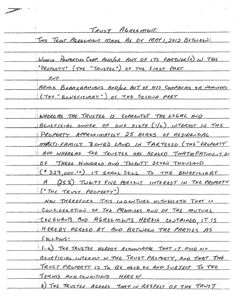 TRUST AGREEMENT.
THIS TRUST AGREEMENT MADE AS OF MAY 1, 2012 BETWEEN:
CORP. AND/OR ONE OF ITS PARTNER(S) IN THIS
"PROPERTY" (THE "TRUSTEE") OF THE FIRST PART
AND
AND/OR ONE OF HIS COMPANIES OR NOMINEES
(THE "BENEFICIARY") OF THE SECOND PART.
WHEREAS THE TRUSTEE IS CURRENTLY THE LEGAL AND
BENEFICIAL OWNER OF ONE SIXTH (1/6) INTEREST IN THE
PROPERTY APPROXIMATELY 25 ACRES OF RESIDENTIAL
MULTI-FAMILY ZONED LAND IN (THE "PROPERTY")
AND WHEREAS THE TRUSTEE HAS AGREED THAT
OF THREE HUNDRED AND THOUSAND
IT SHALL SELL TO THE BENEFICIARY
A (25%) TWENTY FIVE PERCENT INTEREST IN THE PROPERTY
("THE TRUST PROPERTY")
NOW THEREFORE THIS INDENTURE WITNESSETH THAT IN
CONSIDERATION OF THE PREMISES AND OF THE MUTUAL
COVENANTS AND AGREEMENTS HEREIN CONTAINED, IT IS
HEREBY AGREED BY AND BETWEEN THE PARTIES AS
FOLLOWS:
1. a) THE TRUSTEE HEREBY ACKNOWLEDGE THAT IT HAS NO
BENEFICIAL INTEREST IN THE TRUST PROPERTY, AND THAT THE
TRUST PROPERTY IS TO BE HELD ON AND SUBJECT TO THE
TERMS AND CONDITIONS HERE OF.
b) THE TRUSTEE AGREES THAT IN RESPECT OF THE TRUST